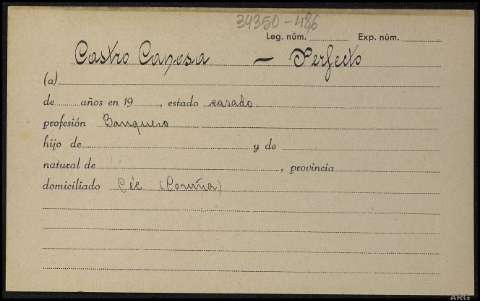 34350-486
Leg. núm. Exp. núm.
Castro Canosa — Perfecto
(a)
de años en 19 , estado casado
profesión Banquero
hijo de y de
natural de , provincia
domiciliado Cée (Coruña)